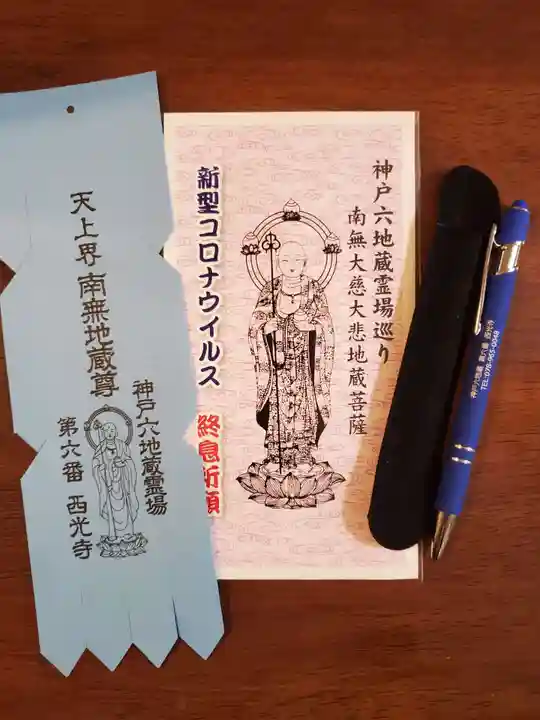 天上界 南無地蔵尊
神戸六地蔵霊場
第六番 西光寺
神戸六地蔵霊場巡り
南無大慈大悲地蔵菩薩
新型コロナウイルス 終息祈願
神戸六地蔵 第六番 西光寺
TEL:078-965-0048